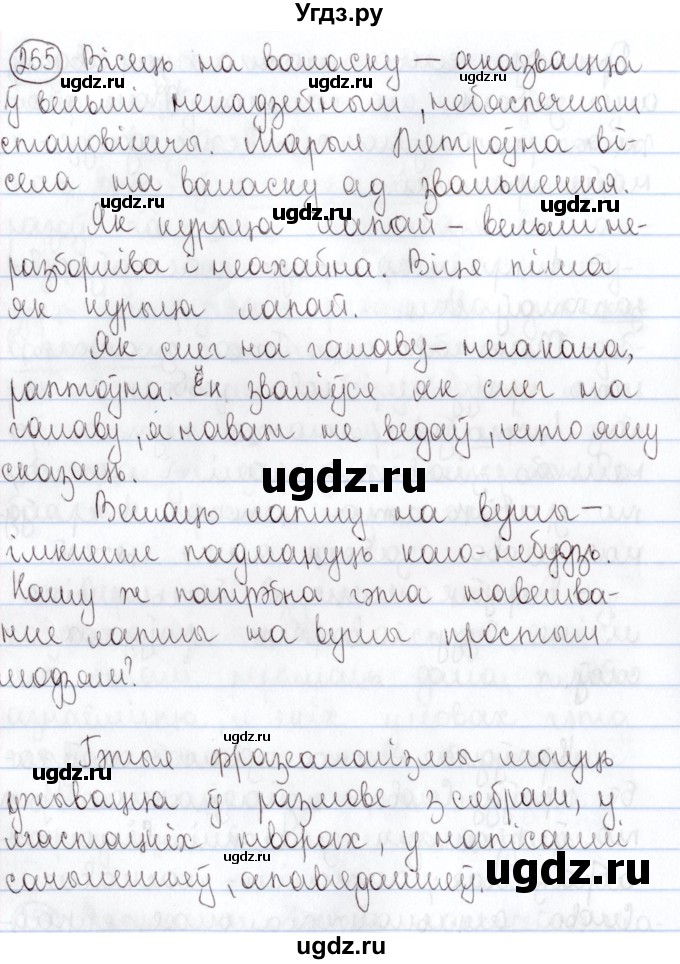 Угдз.ру
265 Вісець на валаску – аказвацца
ugdz.ru ugdz.ru
ў вельмі ненадзейным, небяспечным
становішчы. Марыя Пятроўна ві-
села на валаску ад звальнення.
ugdz.ru ugdz.ru
Як курыца лапай – вельмі не-
разборліва і неахайна. Віця піша
як курыца лапай.
Як снег на галаву – нечакана,
раптоўна. Ён зваліўся як снег на
галаву, я нават не ведаў, што яму
сказаць.
ugdz.ru
Вешаць лапшу на вушы –
імкненне падмануць каго-небудзь.
Каму ж патрэбна гэта навешва-
нне лапшы на вушы простым
людзям?
ugdz.ru
Гэтыя фразеалагізмы могуць
ugdz.ru
ужывацца ў размове з сябрам, у
мастацкіх творах, у напісанні
ugdz.ru ugdz.ru
сачыненняў, апавяданняў.
ugdz.ru